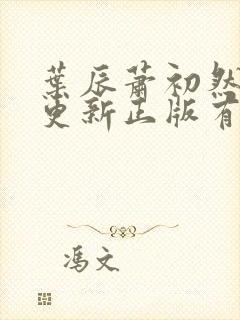 葉辰蕭初然
更新正版有
馮文